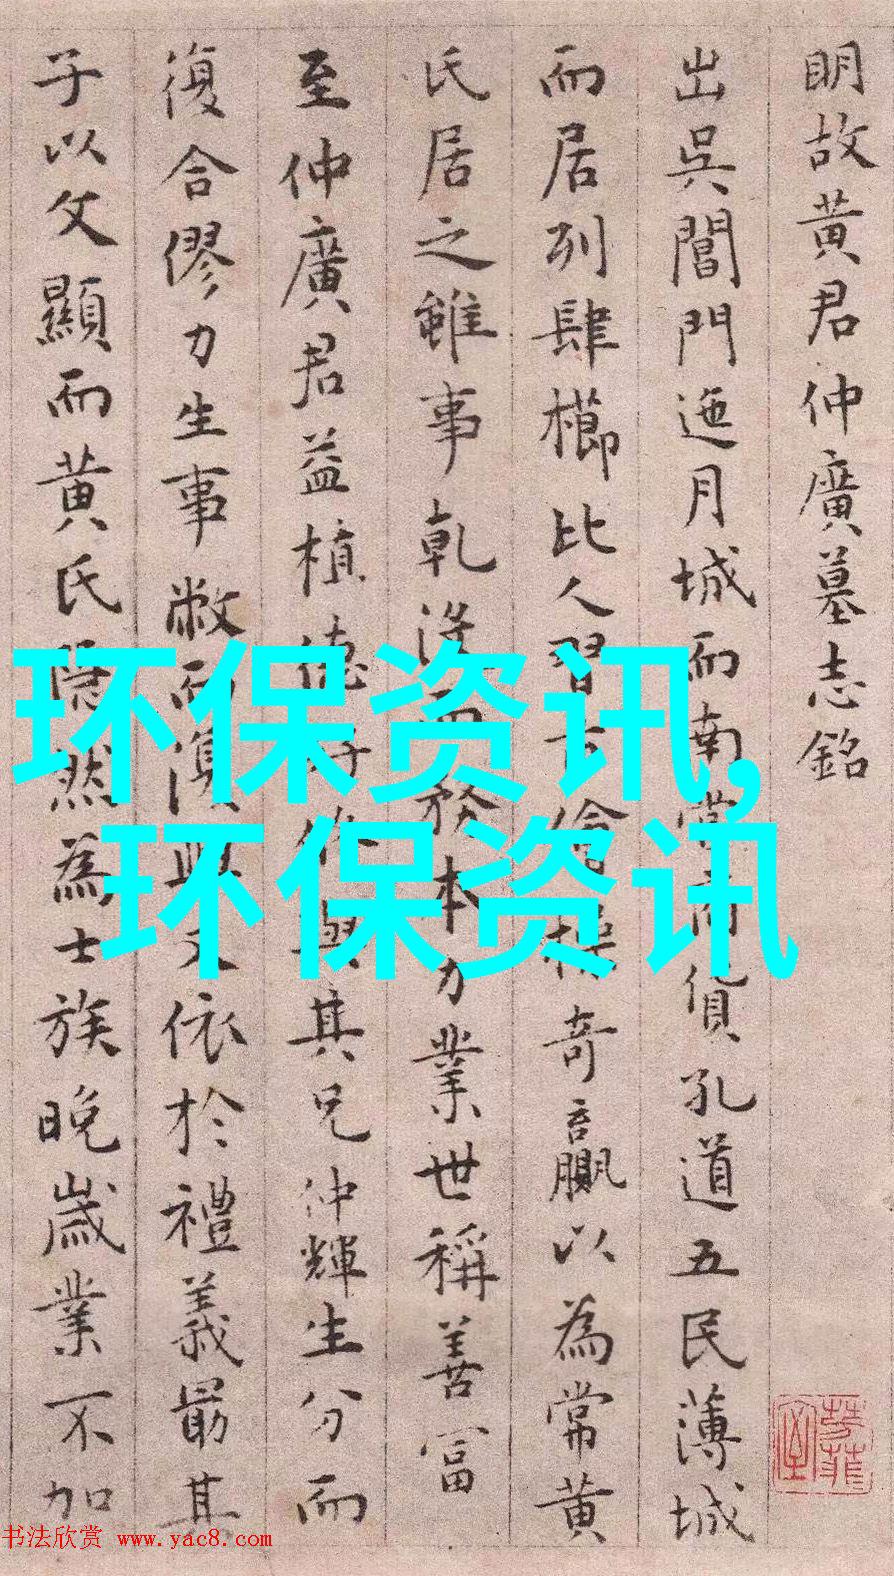 明故黄君仲廣墓志銘
出吳閶門迤月城而南當商貨孔道五民薄城
而居列肆櫛比人習 奇贏以為常黄
氏居之雖事乾没而務本力業世稱善富
至仲廣君益植德 與其兄仲輝生分而
復合僇力生事敝而 文依於禮義最其
子以文顯而黄氏隠然為士族晚歲業不加
环保资讯,
环保资讯
书法欣赏 www.yac8.com